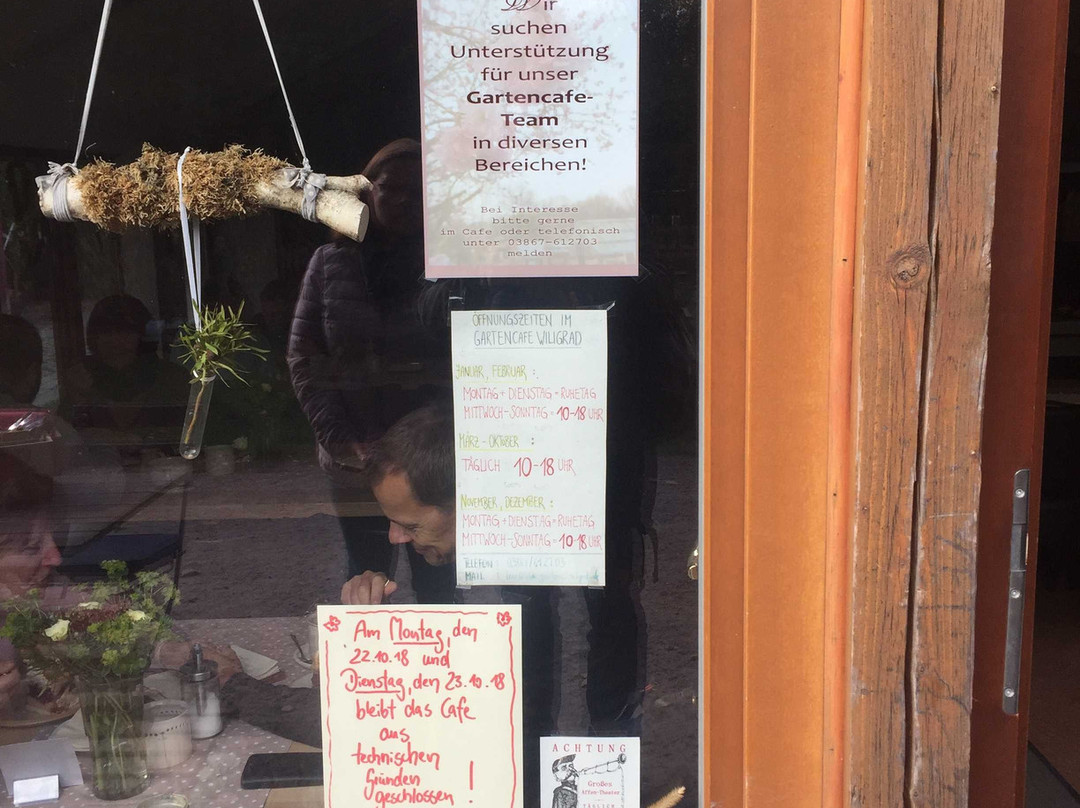 Wir
suchen
Unterstützung
für unser
Gartencafe-
Team
in diversen
Bereichen!
Bei Interesse
bitte gerne
im Cafe oder telefonisch
unter 03867-612703
melden
ÖFFNUNGSZEITEN IM
GARTENCAFE WILIGRAD
JANUAR, FEBRUAR :
MONTAG + DIENSTAG = RUHETAG
MITTWOCH - SONNTAG = 10-18 UHR
MÄRZ - OKTOBER :
TÄGLICH 10-18 UHR
NOVEMBER, DEZEMBER :
MONTAG + DIENSTAG = RUHETAG
MITTWOCH - SONNTAG = 10-18 UHR
TELEFON: 03867/612703
MAIL:
Am Montag, den
22.10.18 und
Dienstag, den 23.10.18
bleibt das Cafe
aus
technischen
Gründen
geschlossen !
ACHTUNG
Großes
Affen-Theater